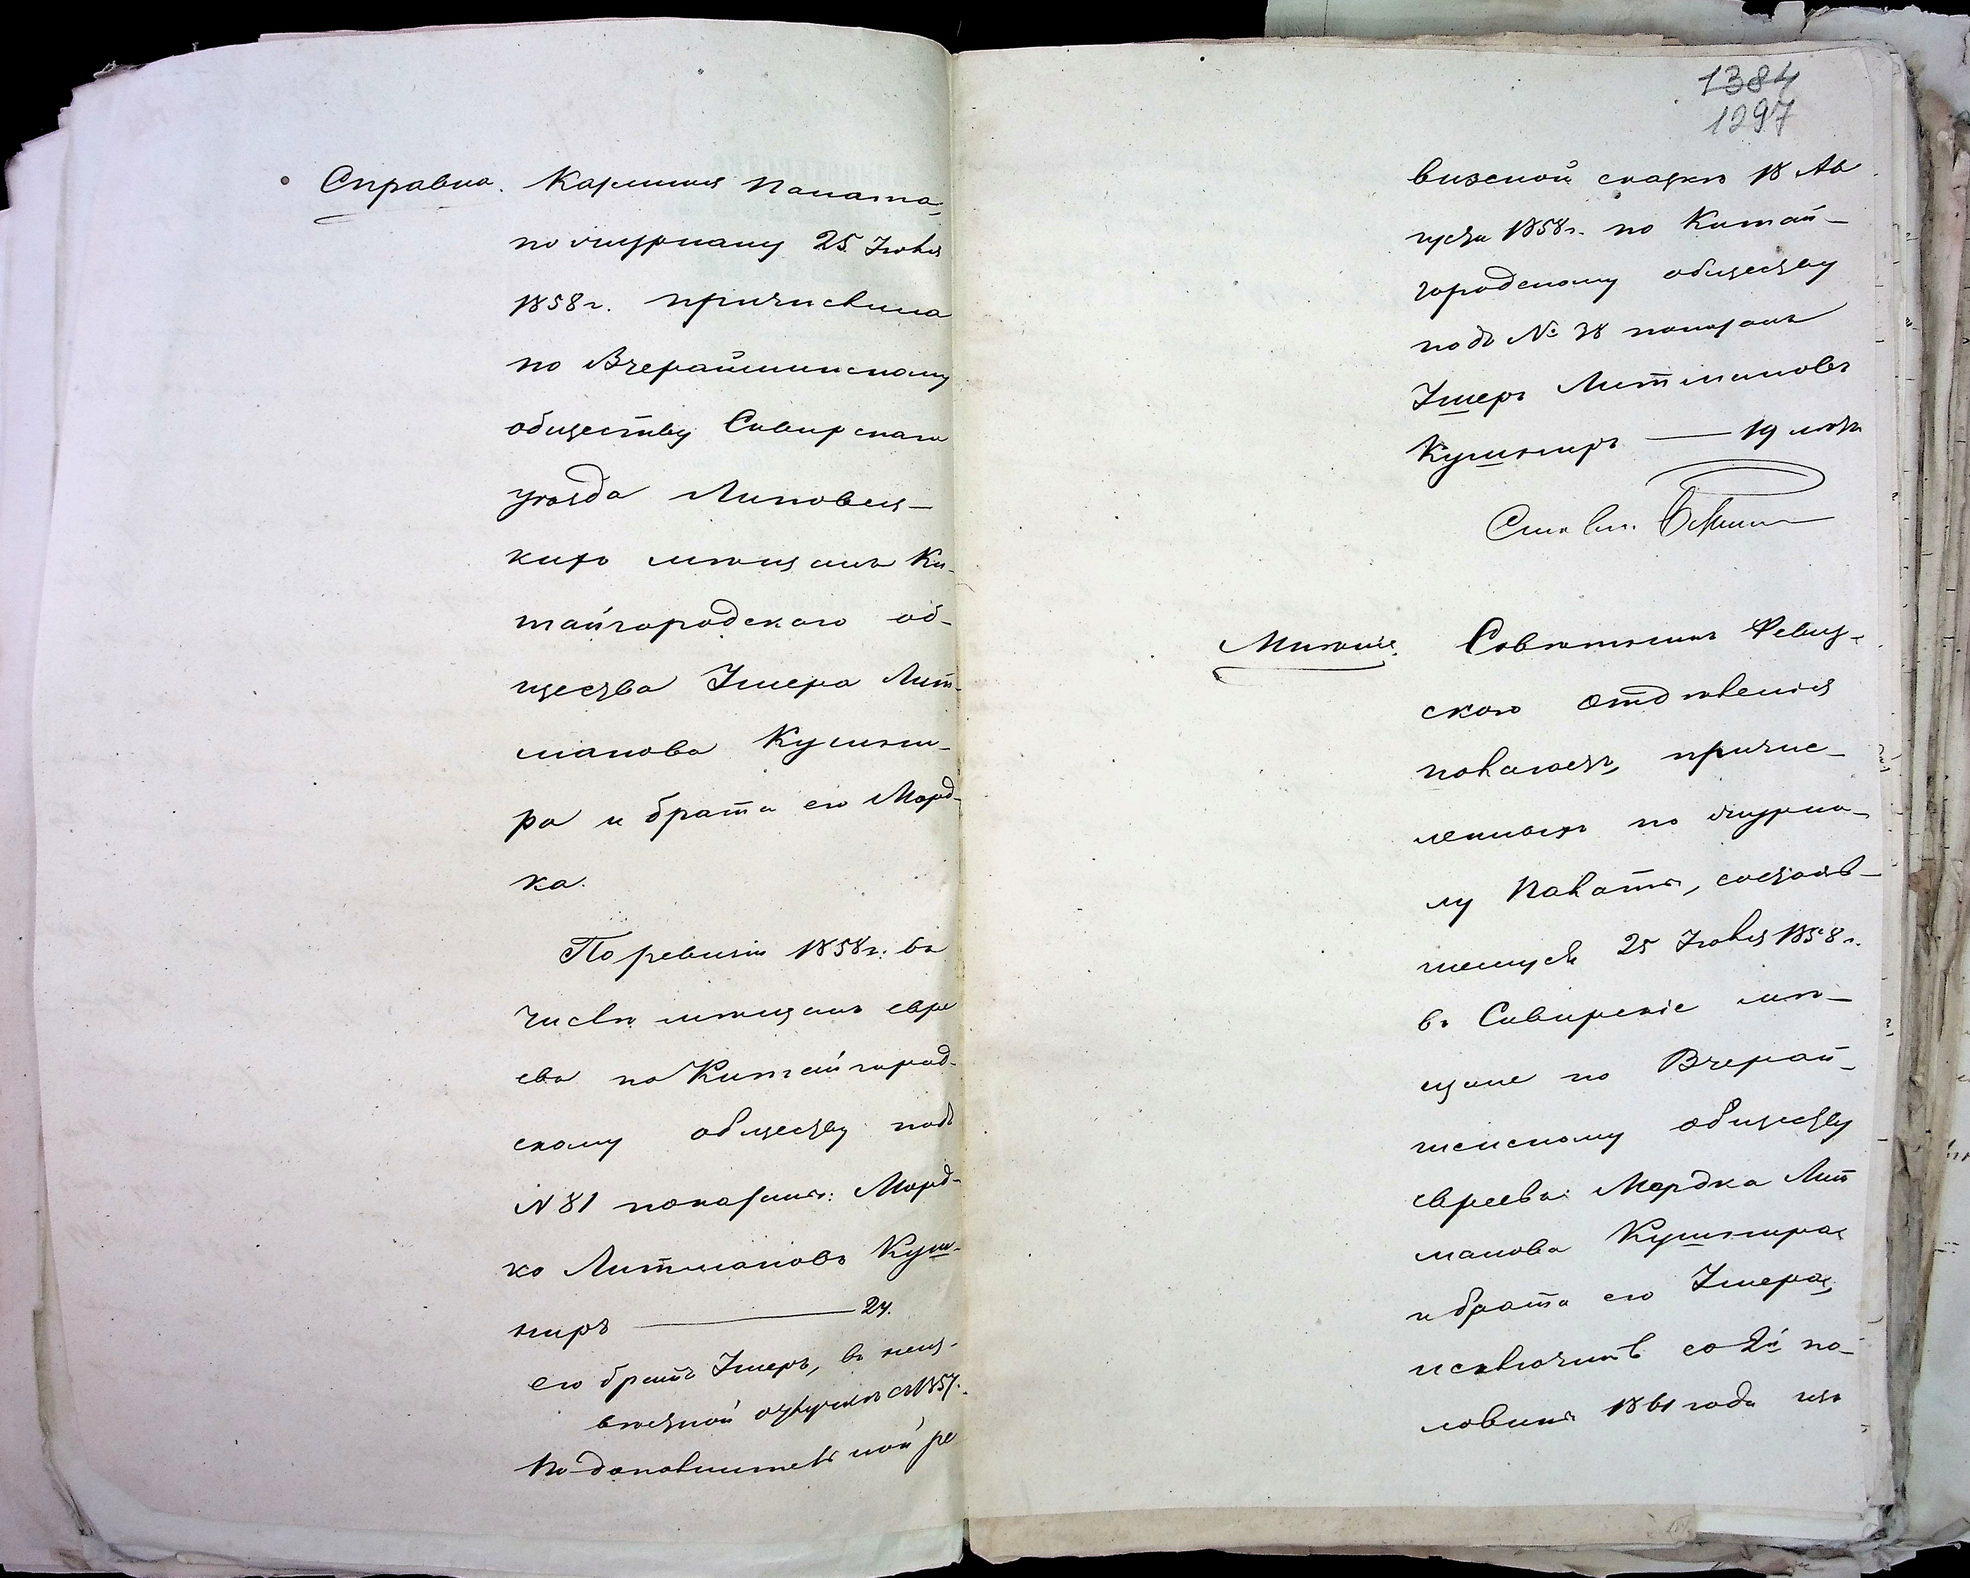 Справка. Казенная Палата,
по журналу 25 Іюля
1858 г. причислила
по Вчерайшинскому
обществу Сквирскаго
уѣзда Липовец-
кихъ мѣщанъ Ки-
тайгородскаго об-
щества Iмера Лит-
манова Кушни-
ра и брата его Морд-
ка.
По ревизіи 1858 г. въ
числѣ мѣщанъ евре
евъ по Китайгород-
скому обществу подъ
N 81 показаны: Морд-
ко Литмановъ Куш-
ниръ — 24.
его братъ Iмеръ, въ неиз-
вѣстной отлучкѣ съ 1857.
По дополнительной ре
1384
1297
визской сказкѣ 18 Ав
густа 1858 г. по Китай-
городскому обществу
подъ № 38 показанъ
Iмеръ Литмановъ
Кушниръ — 19 лѣтъ
Мнѣніе. Совѣтникъ Ревиз-
скаго отдѣленія
полагаетъ, причис-
ленныхъ по журна-
лу Палаты, состояв-
шемуся 25 Іюля 1858 г.
въ Сквирскіе мѣ-
щане по Вчерай-
шенскому обществу
евреевъ: Мордка Лит
манова Кушнира
и брата его Iмера,
исключить со 2й по-
ловины 1861 года изъ